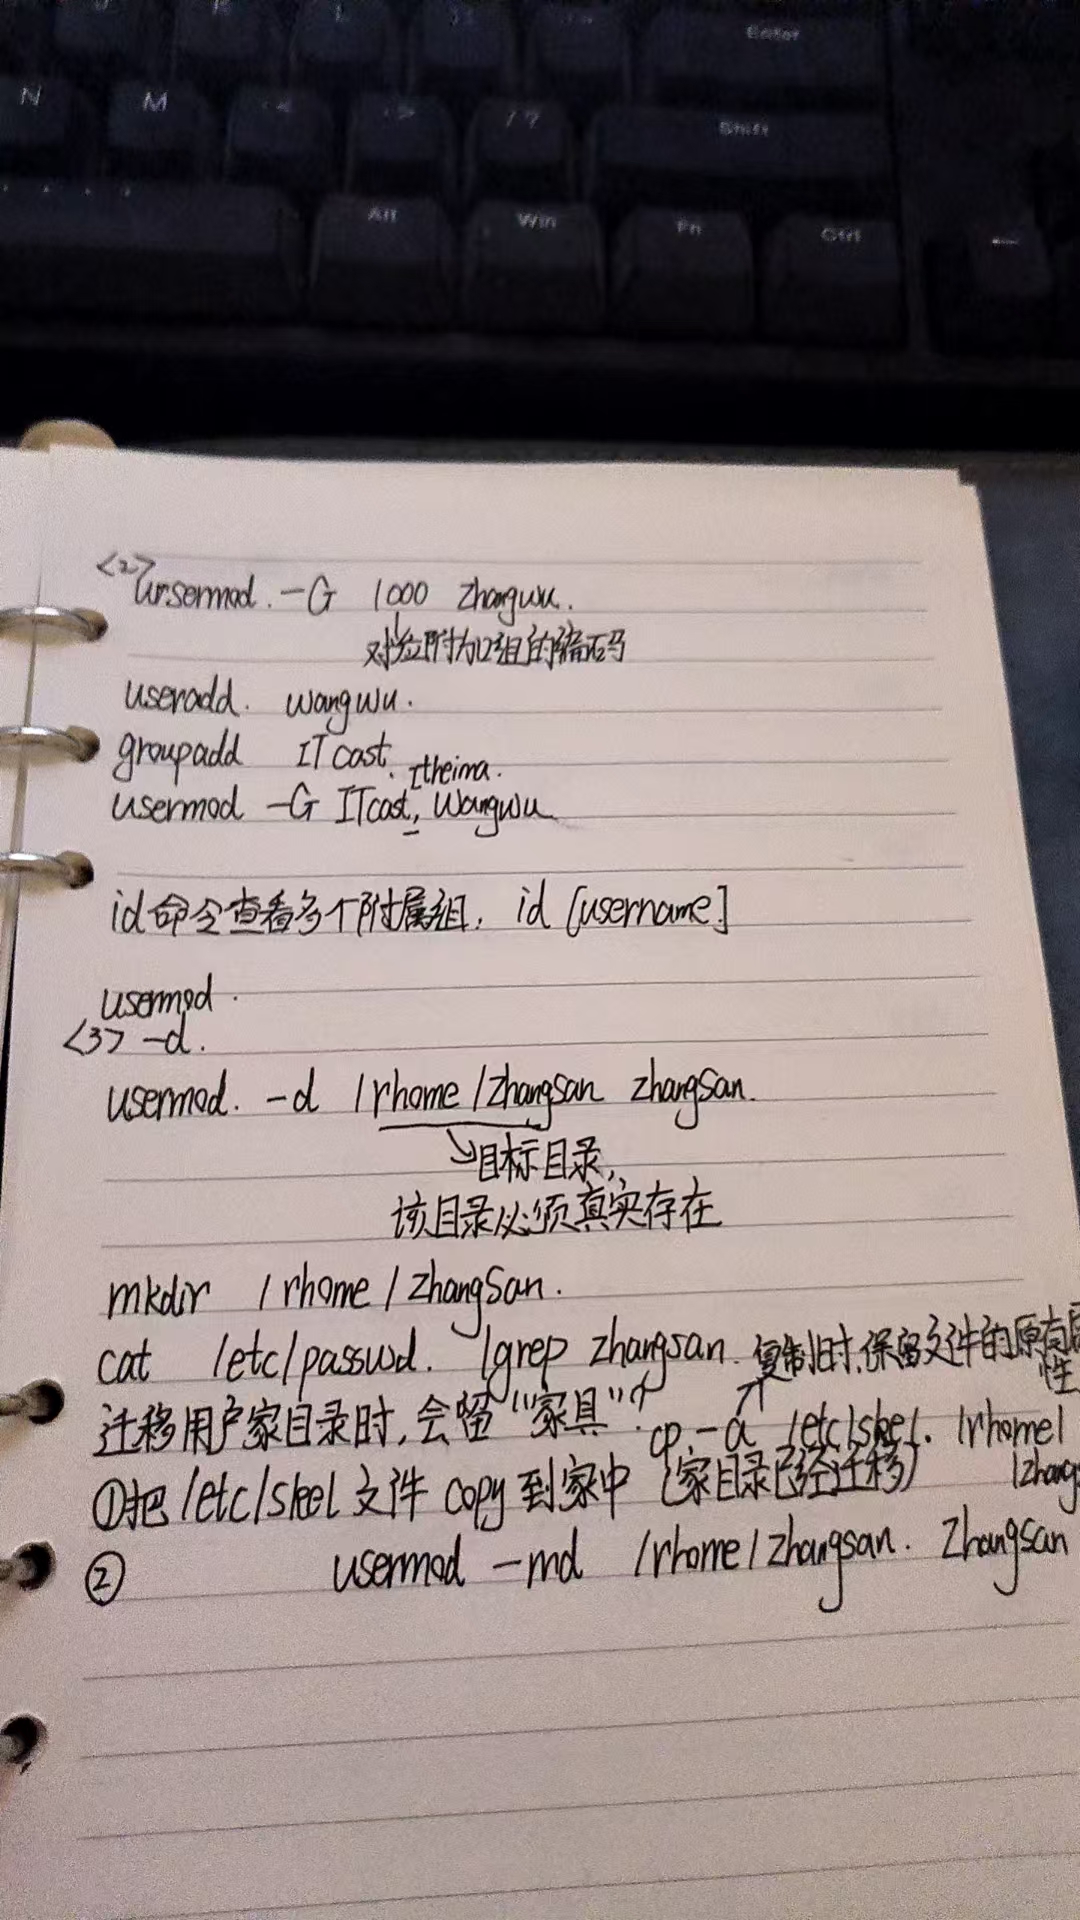 Enter
N M < > / ? Shift
Alt Win Fn Ctrl
<2>
usermod. -G 1000 zhangwu.
对应附加组的
useradd. wangwu.
groupadd ITcast.
Itheima.
usermod -G ITcast, Wangwu
id命令查看多个附属组, id [username]
usermod.
<3> -d.
usermod. -d /rhome/zhangsan zhangsan.
→目标目录,
该目录必须真实存在
mkdir /rhome/zhangSan.
cat /etc/passwd. |grep zhangsan.
复制时,保留文件的原有属
性
迁移用户家目录时,会留"家具"?
cp -a /etc/skel. /rhome/
/zhang
①把/etc/skel文件 copy到家中 (家目录已经迁移)
② usermod -md /rhome/zhangsan. Zhangsan